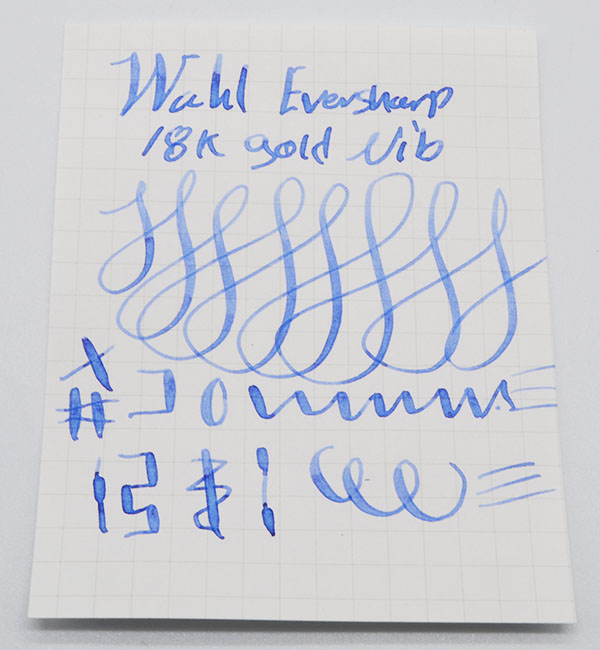 Wahl Eversharp
18K gold Nib